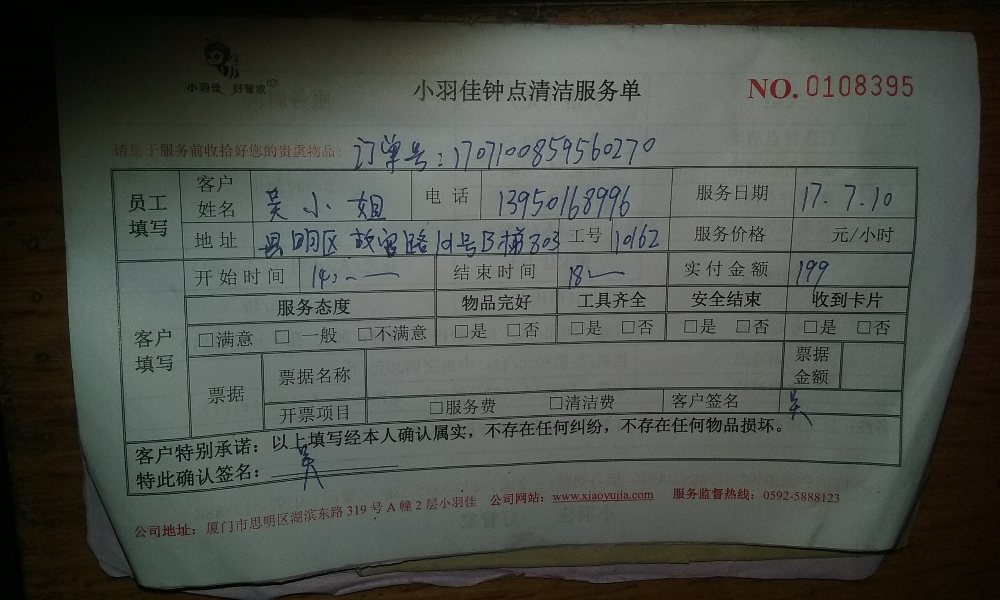 小羽佳 好管家
小羽佳钟点清洁服务单
NO. 0108395
请您于服务前收拾好您的贵重物品:
订单号:170710085956027 0
员工填写 客户姓名 吴小姐 电话 13950168996 服务日期 17.7.10
地址 思明区 故宫路 号B梯803 工号 10162 服务价格 元/小时
客户填写 开始时间 14: 结束时间 18 实付金额 199
服务态度 物品完好 工具齐全 安全结束 收到卡片
□满意 □一般 □不满意 □是 □否 □是 □否 □是 □否 □是 □否
票据 票据名称 票据金额
开票项目 □服务费 □清洁费 客户签名 吴
客户特别承诺:以上填写经本人确认属实,不存在任何纠纷,不存在任何物品损坏。
特此确认签名: 吴
公司地址:厦门市思明区湖滨东路 319 号 A 幢 2 层小羽佳 公司网站:www.xiaoyujia.com 服务监督热线:0592-5888123